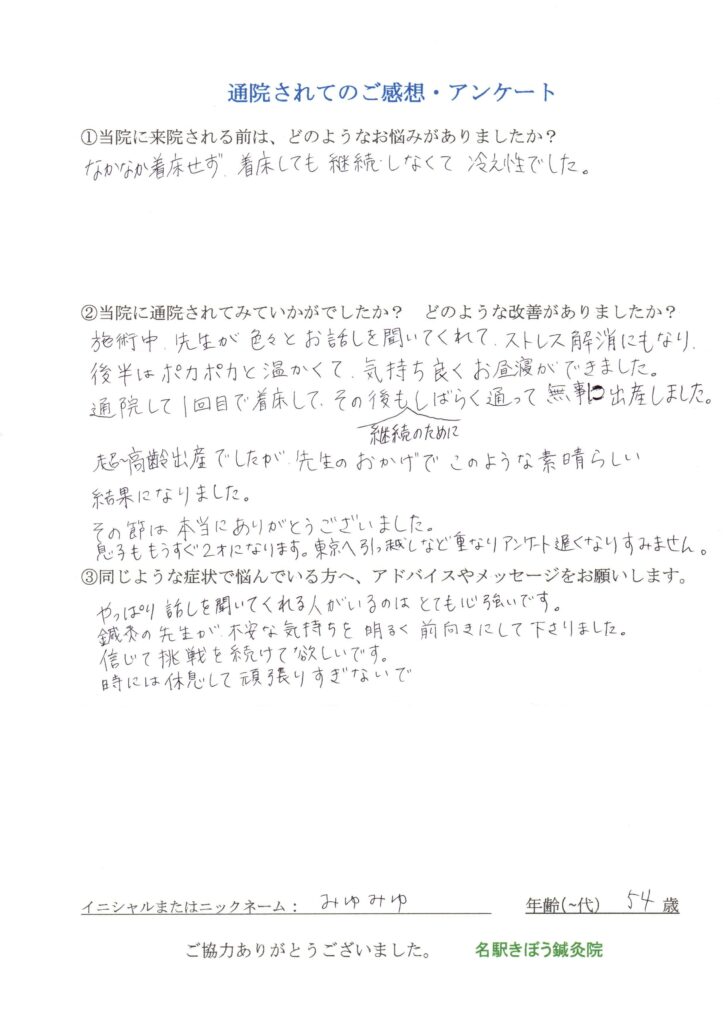 通院されてのご感想・アンケート
①当院に来院される前は、どのようなお悩みがありましたか？
なかなか着床せず、着床しても継続しなくて 冷え性でした。
②当院に通院されてみていかがでしたか？　どのような改善がありましたか？
施術中、先生が色々とお話しを聞いてくれて、ストレス解消にもなり、
後半はポカポカと温かくて、気持ち良くお昼寝ができました。
通院して1回目で着床して、その後もしばらく通って 無事に出産しました。
継続のために
超高齢出産でしたが、先生のおかげで このような素晴らしい
結果になりました。
その節は本当にありがとうございました。
息子ももうすぐ2才になります。東京へ引っ越しなど重なりアンケート遅くなりすみません。
③同じような症状で悩んでいる方へ、アドバイスやメッセージをお願いします。
やっぱり 話しを聞いてくれる人がいるのは とても心強いです。
鍼灸の先生が、不安な気持ちを 明るく 前向きにして下さりました。
信じて挑戦を続けて欲しいです。
時には休息して頑張りすぎないで
イニシャルまたはニックネーム： みゆみゆ　年齢(~代) 54 歳
ご協力ありがとうございました。　名駅きぼう鍼灸院